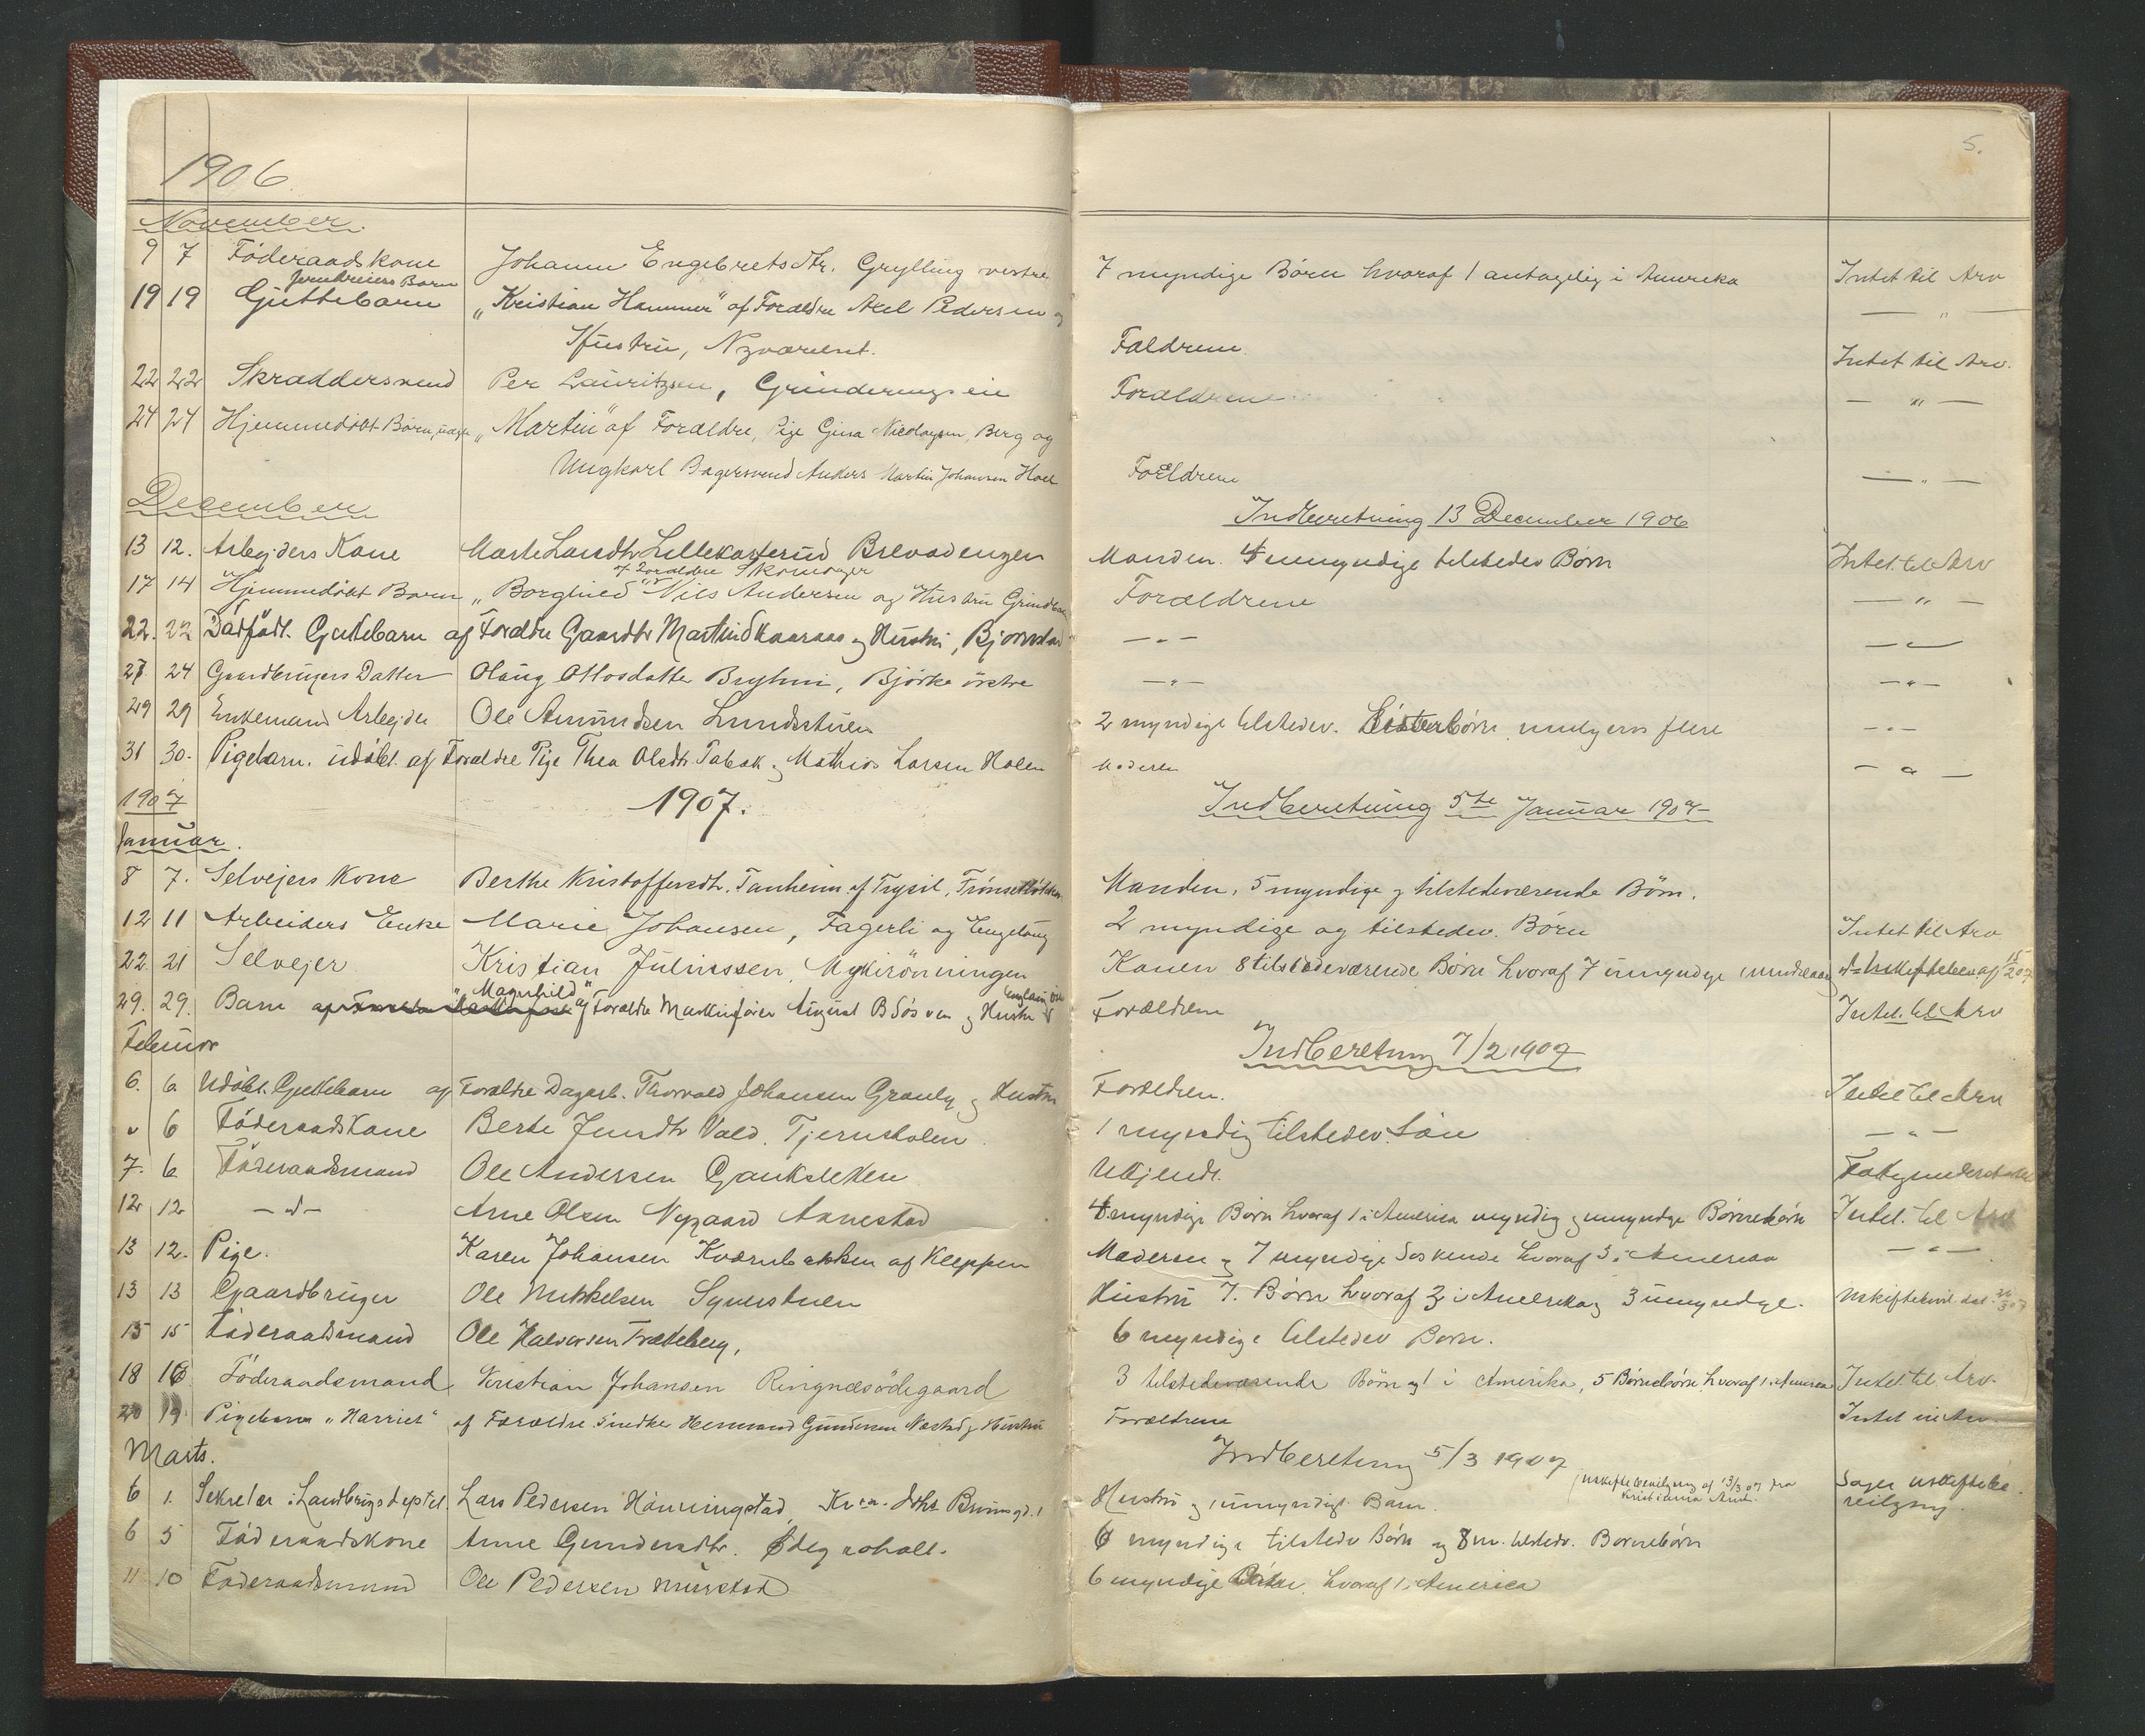 1906
5.
November.
9 7 Föderaadskone Johanne Engebretsdtr. Grylling vestre 7 myndige Børn hvoraf 1 antagelig i Amerika Intet til Arv
Barn
19 19 Guttebarn „Kristian Hammer" af Forældre Axel Pedersen og — " —
Hustru, Faldrene Intet til Arv.
22 22 Skræddersvend Per Lauritzsen, Grinderengseie Forældrene — " —
24 24 Hjemmedöbt Barn, „Martin" af Forældre, Pige Gina Nicolaysen, Berg og
Ungkarl Bagersvend Anders Martin Johansen Hoel Forældrene — " —
December
Indberetning 13 December 1906
13 12. Arbejders Kone Marte Larsdtr Lillekasterud Brevadengen Manden. 4 umyndige tilstedev Børn Intet til Arv
af Forældre Skomager
17 14 Hjemmedöbt Barn „Borghild" Nils Andersen og Hustru Forældrene — " —
22. 22 Dødfødt Guttebarn af Forældre Gaardbr Martin Skaaraas og Hustru, Bjørnstad — " — — " —
27 24 Gaardbrugers Datter Olaug Ottosdatter Bryhni, Björke östre — " — — " —
29 29 Enkemand Arbejder Ole Amundsen Lundsstuen 2 myndige tilstedev. Søsterbörn muligens flere — " —
31 30. Pigebarn. udöbt af Forældre Pige Thea Olsdtr Tabak og Mathias Larsen Holen Moderen — " —
1907 1907. Indberetning 5te Januar 1907
Januar.
8 7. Selvejers Kone Berthe Kristoffersdtr. Tanheim af Trysil, Manden, 5 myndige og tilstedeværende Börn.
12 11 Arbeiders Enke Marie Johansen, Fagerli og Engelaug 2 myndige og tilstedev. Børn Intet til Arv
22. 21 Selvejer Kristian Juliussen, Mykirönningen Konen 8 tilstedeværende Børn hvoraf 7 umyndige
„Magnhild"
29. 29. Barn af Forældre Maskinfører August B og Hustru Forældrene Intet til Arv
Februar
Indberetning 7/2 1907
6. 6 Udöbt Guttebarn af Forældre Dagarb. Thorvald Johansen Granly og Hustru Forældren. Intet til Arv
" 6 Föderaadskone Berte Jensdtr Vald. Tjernsholen 1 myndig tilstedev. Søn — " —
7. 6 Föderaadsmand Ole Andersen Gaukeleken Ukjendt. Fattigunderstøttet
12 12 — " — Arne Olsen Nygaard Aanestad 4 myndige Børn hvoraf 1 i America myndig og umyndige Børnebörn Intet til Arv
13 12. Pige. Karen Johansen Kværnbakken af Kleppen Moderen og 7 myndige Søskende hvoraf 3 i America — " —
13 13 Gaardbruger Ole Mikkelsen Synerstuen Hustru 7. Børn hvoraf 3 i Amerika og 3 umyndige.
15 15 Föderaadsmand Ole Halvorsen Træteberg, 6 myndige tilstedev Børn.
18 18 Föderaadsmand Kristian Johansen Ringnæsödegaard 3 tilstedeværende Børn og 1 i Amerika, 5 Børnebörn hvoraf 1 i America Intet til Arv.
20 19 Pigebarn „Harriet" af Forældre Snedker Hermand Gundersen Næstad og Hustru Forældrene Intet til Arv.
Marts.
Indberetning 5/3 1907
uskiftebevilgning af 13/3 07 fra
Kristiania Amt.
6 1. Sekretær i Landbrugsdeptet. Lars Pedersen Hönningstad, Hustru og 1 umyndigt Barn. Søger uskiftebe
vilgning.
6 5 Föderaadskone Anne Gundersdtr. 6 myndige tilstedev Børn og 8 m. tilstedv. Børnebörn
11 10 Föderaadsmand Ole Pedersen Murstad 6 myndige Börn, hvoraf 1 i America